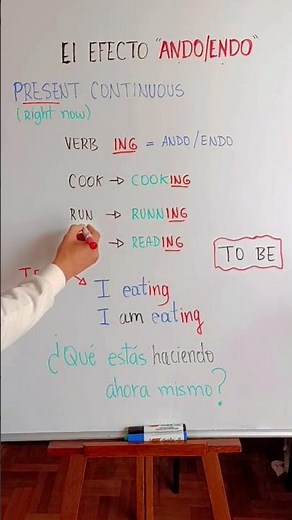 El EFECTO "ANDO/ENDO"
PRESENT CONTINUOUS
(Right now)
VERB ING = ANDO/ENDO
COOK → COOKING
RUN → RUNNING
→ READING
TO BE
I eating
I am eating
¿Qué estás haciendo
ahora mismo?